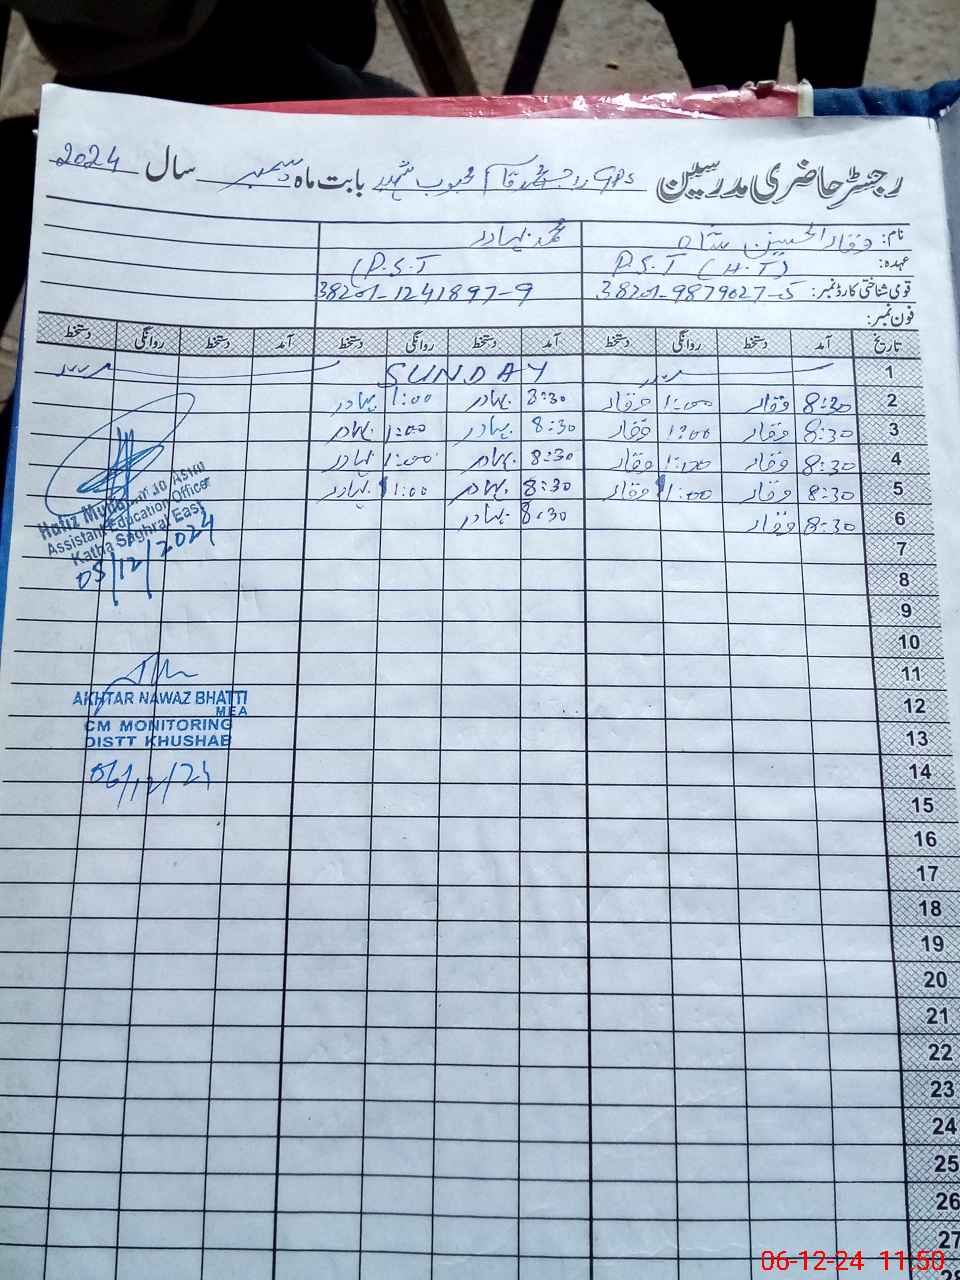 رجسٹر حاضری مدرسین GPS محبوب شہید بابت ماہ دسمبر سال 2024
نام: وقار الحسنین شاہ محمد بہادر
عہدہ: P.S.T (H.T) P.S.T
قومی شناختی کارڈ نمبر: 38201-9879027-5 38201-1241897-9
فون نمبر:
تاریخ آمد دستخط روانگی دستخط آمد دستخط روانگی دستخط آمد دستخط روانگی دستخط
1 SUNDAY
2 8:30 وقار 1:00 وقار 8:30 بہادر 1:00 بہادر
3 8:30 وقار 1:00 وقار 8:30 بہادر 1:00 بہادر
4 8:30 وقار 1:00 وقار 8:30 بہادر 1:00 بہادر
5 8:30 وقار 1:00 وقار 8:30 بہادر 1:00 بہادر
6 8:30 وقار 8:30 بہادر
7
8
9
10
11
12
13
14
15
16
17
18
19
20
21
22
23
24
25
26
27
28
Hafiz
Assistant Education Officer
Katha Saghral East
05/12/2024
AKHTAR NAWAZ BHATTI
MEA
CM MONITORING
DISTT KHUSHAB
06/12/24
06-12-24 11:50